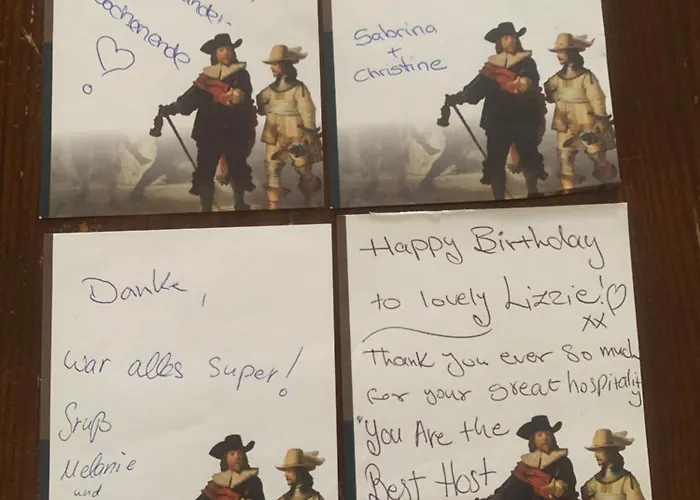 Wochenende
Sabrina
+
Christine
Danke,
war alles super!
Gruß
Melanie
und
Happy Birthday
to lovely Lizzie!
xx
Thank you ever so much
for your great hospitality
"You Are the
Best Host